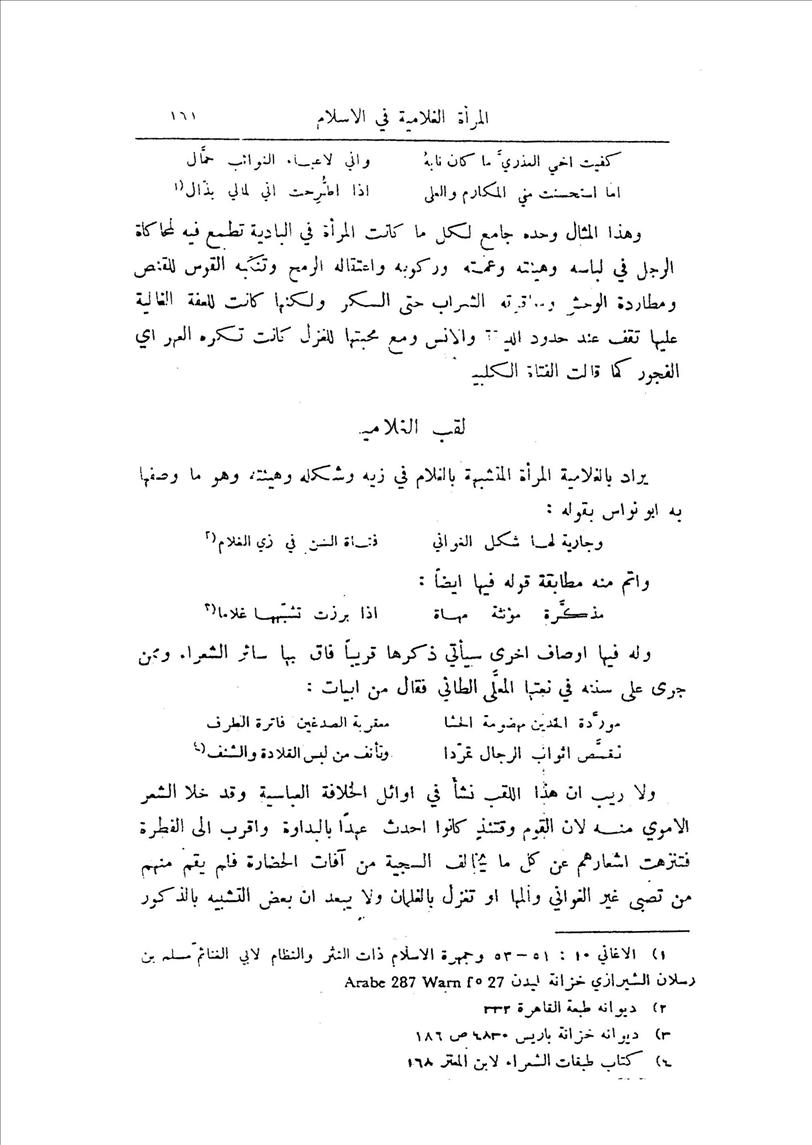 المرأة الغلامية في الاسلام ١٦١
كفيت اخي العذريَّ ما كان نابهُ واني لاعباء النوائب حمَّال
اما استحسنت مني المكارم والعلى اذا اطُّرحت اني لمالي بذّال(١
وهذا المثال وحده جامع لكل ما كانت المرأة في البادية تطمع فيه لمحاكاة
الرجل في لباسه وهيئته وعمّته وركوبه واعتقاله الرمح وتنكّبه القوس للقنص
ومطاردة الوحش ومعاقرته الشراب حتى السكر ولكنها كانت للعفة الغالبة
عليها تقف عند حدود والانس ومع محبتها للغزل كانت تكره العهر اي
الفجور كما قالت الفتاة الكلبية
لقب الغلامية
يراد بالغلامية المرأة المتشبهة بالغلام في زيه وشكله وهيئته، وهو ما وصفها
به ابو نواس بقوله :
وجارية لها شكل الغواني فتاة السن في زي الغلام(٢
واتم منه مطابقة قوله فيها ايضاً :
مذكَّرة مؤنثة مهاة اذا برزت تشبّهها غلاما(٣
وله فيها اوصاف اخرى سيأتي ذكرها قريباً فاق بها سائر الشعراء وممن
جرى على سننه في نعتها المعلَّى الطائي فقال من ابيات :
مورَّدة الخدين مهضومة الحشا معقربة الصدغين فاترة الطرف
تقمَّص اثواب الرجال تمرّدا وتأنف من لبس القلادة والشنف(٤
ولا ريب ان هذا اللقب نشأ في اوائل الخلافة العباسية وقد خلا الشعر
الاموي منه لان القوم وقتئذٍ كانوا احدث عهدًا بالبداوة واقرب الى الفطرة
فتنزهت اشعارهم عن كل ما يخالف السجية من آفات الحضارة فلم يقم منهم
من تصبى غير الغواني والمها او تغزل بالغلمان ولا يبعد ان بعض التشبيه بالذكور
١) الاغاني ١٠ : ٥١ – ٥٣ وجمهرة الاسلام ذات النثر والنظام لابي الغنائم مسلم بن
رسلان الشيرازي خزانة ليدن Arabe 287 Warn fo 27
٢) ديوانه طبعة القاهرة ٣٣٢
٣) ديوانه خزانة باريس ٤٨٣٠ ص ١٨٦
٤) كتاب طبقات الشعراء لابن المعتز ١٦٨